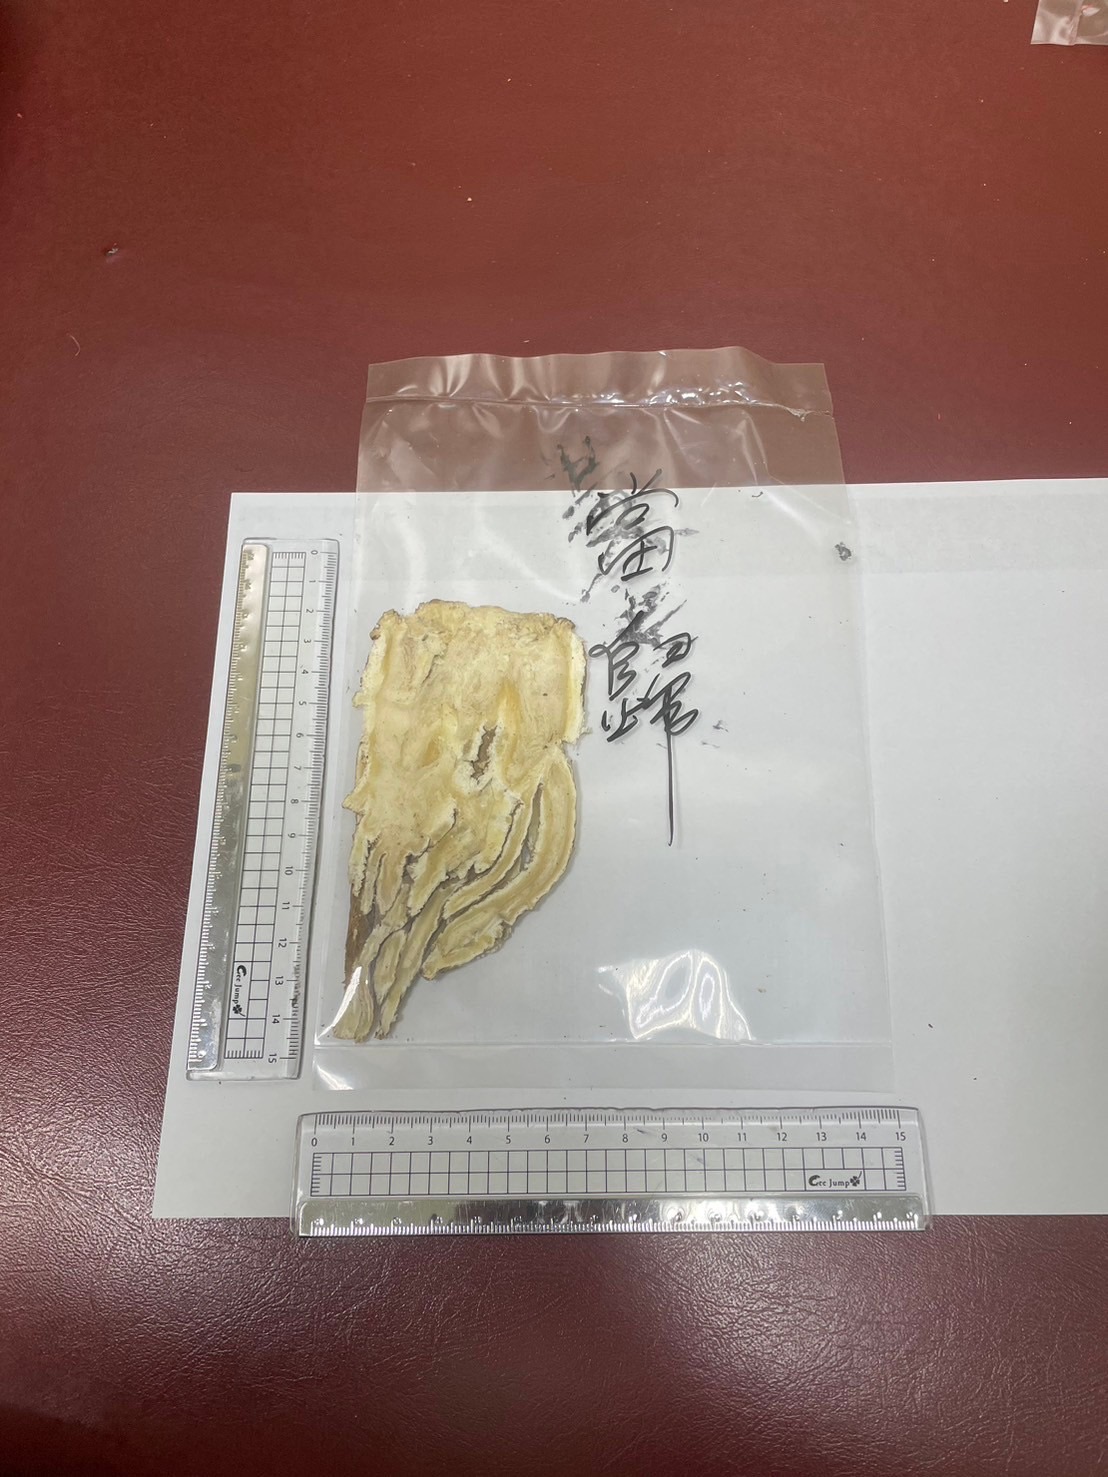 當歸
0 1 2 3 4 5 6 7 8 9 10 11 12 13 14 15
Gee Jump
0 1 2 3 4 5 6 7 8 9 10 11 12 13 14 15
Gee Jump